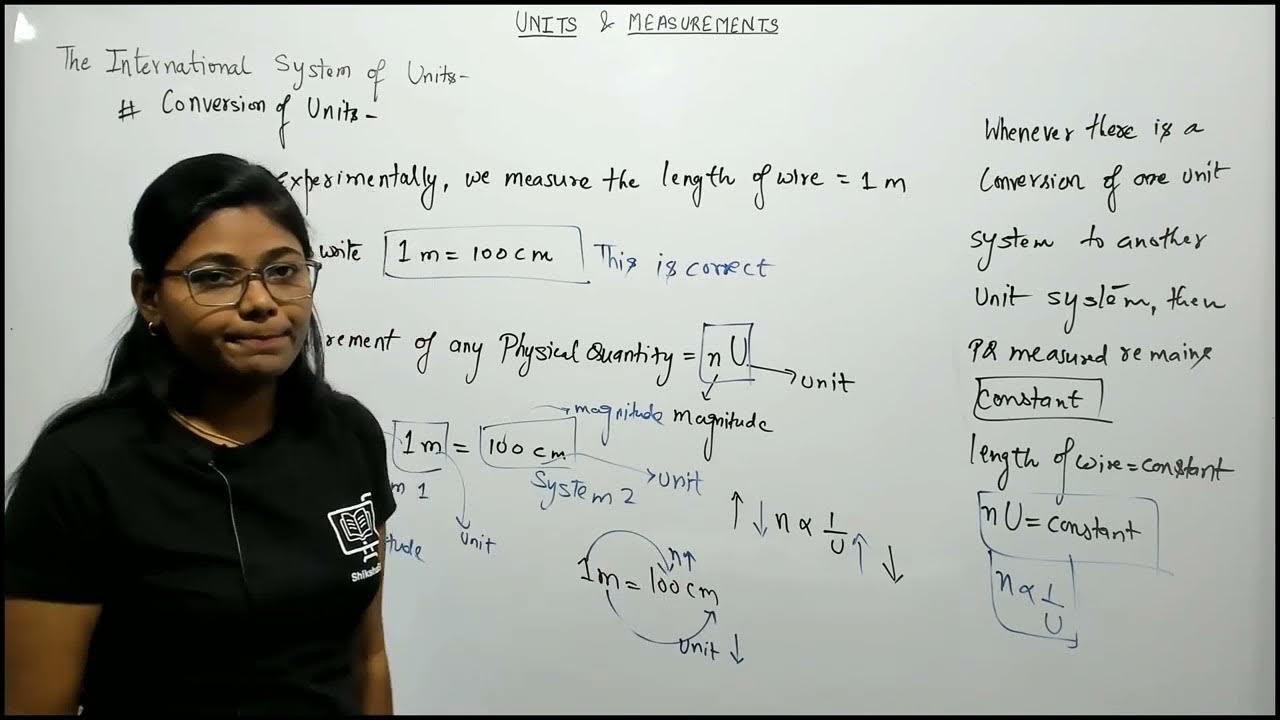 UNITS & MEASUREMENTS
The International System of Units-
# Conversion of Units-
experimentally, we measure the length of wire = 1 m
write 1 m = 100 cm This is correct
rement of any Physical Quantity = n U
unit
magnitude magnitude
1 m = 100 cm
m 1 System 2 unit
tude unit
n ∝ 1/U
n↑
1m = 100 cm
unit ↓
Whenever there is a
Conversion of one unit
system to another
Unit system, then
PQ measured remains
constant
length of wire = constant
n U = constant
n ∝ 1/U